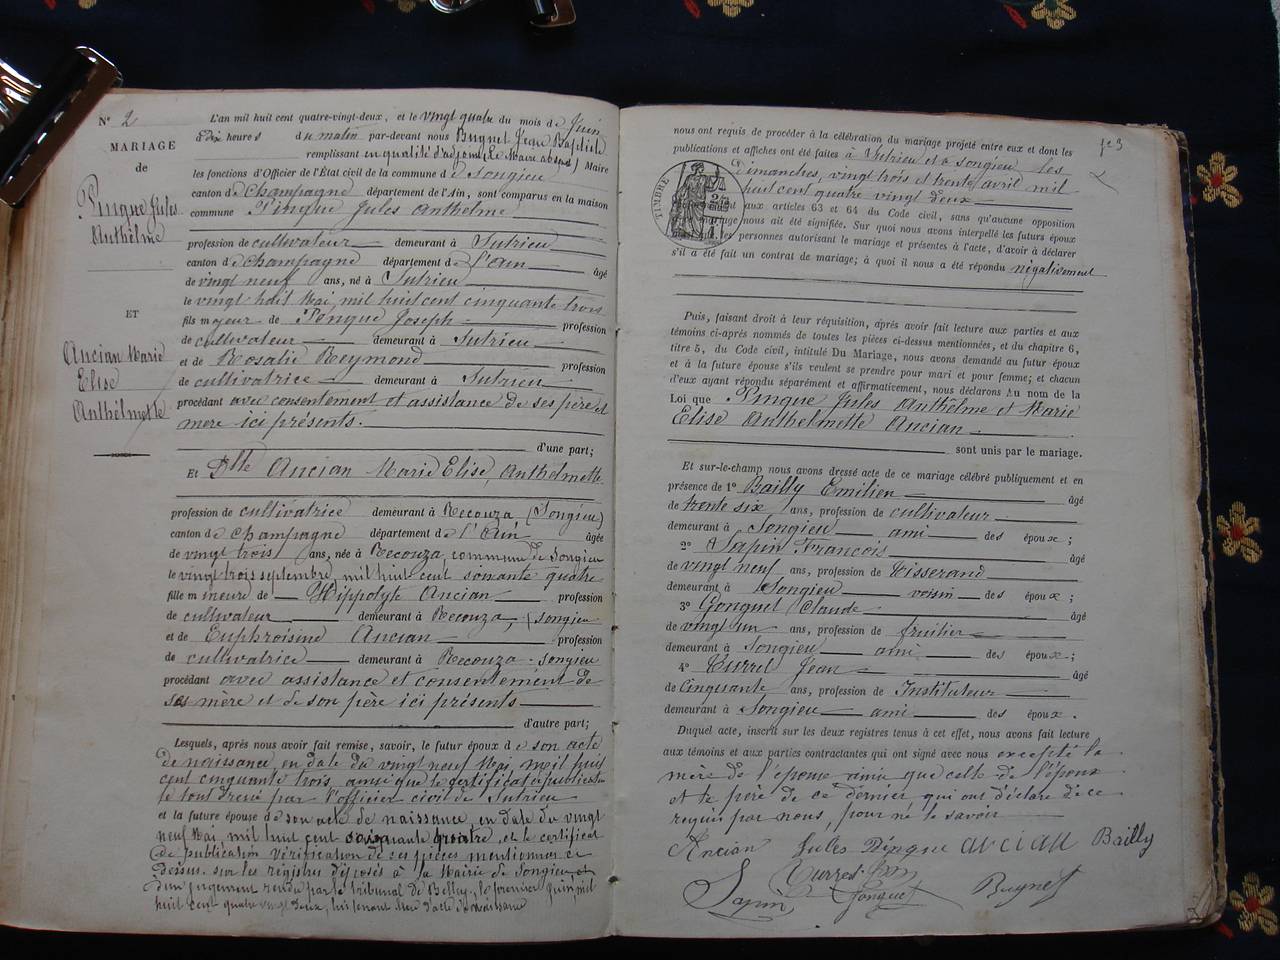 N° 2
MARIAGE
de
Pingue Jules
Anthelme
ET
Ancian Marie
Elise
Anthelmette
L'an mil huit cent quatre-vingt-deux, et le vingt quatre du mois de Juin
à dix heures du matin par-devant nous Bugnet Jean Baptiste
remplissant en qualité d'adjoint (le Maire absent) Maire
les fonctions d'Officier de l'État civil de la commune de Songieu
canton de Champagne département de l'Ain, sont comparus en la maison
commune Pingue Jules Anthelme
profession de cultivateur demeurant à Sutrieu
canton de Champagne département de l'Ain âgé
de vingt neuf ans, né à Sutrieu
le vingt huit Mai, mil huit cent cinquante trois
fils majeur de Pingue Joseph profession
de cultivateur demeurant à Sutrieu
et de Rosalie Reymond profession
de cultivatrice demeurant à Sutrieu
procédant avec consentement et assistance de ses père et
mère ici présents.
d'une part;
Et Dlle Ancian Marie Elise, Anthelmette
profession de cultivatrice demeurant à Recouza (Songieu)
canton de Champagne département de l'Ain âgée
de vingt trois ans, née à Recouza commune de Songieu
le vingt trois septembre, mil huit cent soixante quatre
fille mineure de Hippolyte Ancian profession
de cultivateur demeurant à Recouza, (Songieu
et de Euphroisine Ancian profession
de cultivatrice demeurant à Recouza - Songieu
procédant avec assistance et consentement de
ses mère et de son père ici présents
d'autre part;
Lesquels, après nous avoir fait remise, savoir, le futur époux de son acte
de naissance, en date du vingt neuf Mai, mil huit
cent cinquante trois, ainsi que le certificat de publication
le tout dressé par l'officier civil de Sutrieu
et la future épouse de son acte de naissance, en date du vingt
neuf Mai, mil huit cent et le certificat
de publication vérification de ses pièces mentionnées ci
dessus sur les registres déposés à la Mairie de Songieu et
d'un jugement rendu par le tribunal de Belley, le premier juin, mil
huit cent quatre vingt deux, lui tenant lieu d'acte de naissance
fo 3
nous ont requis de procéder à la célébration du mariage projeté entre eux et dont les
publications et affiches ont été faites à Sutrieu et à Songieu les
Dimanches, vingt trois et trente avril mil
huit cent quatre vingt deux
TIMBRE
aux articles 63 et 64 du Code civil, sans qu'aucune opposition
mariage nous ait été signifiée. Sur quoi nous avons interpellé les futurs époux
les personnes autorisant le mariage et présentes à l'acte, d'avoir à déclarer
s'il a été fait un contrat de mariage; à quoi il nous a été répondu négativement
Puis, faisant droit à leur réquisition, après avoir fait lecture aux parties et aux
témoins ci-après nommés de toutes les pièces ci-dessus mentionnées, et du chapitre 6,
titre 5, du Code civil, intitulé Du Mariage, nous avons demandé au futur époux
et à la future épouse s'ils veulent se prendre pour mari et pour femme; et chacun
d'eux ayant répondu séparément et affirmativement, nous déclarons au nom de la
Loi que Pingue Jules Anthelme et Marie
Elise Anthelmette Ancian
sont unis par le mariage.
Et sur-le-champ nous avons dressé acte de ce mariage célébré publiquement et en
présence de 1° Bailly Emilien âgé
de trente six ans, profession de cultivateur
demeurant à Songieu ami des époux;
2° Sapin François âgé
de vingt neuf ans, profession de Tisserand
demeurant à Songieu voisin des époux;
3° Gonguet Claude âgé
de vingt un ans, profession de fruitier
demeurant à Songieu ami des époux;
4° Turrel Jean âgé
de Cinquante ans, profession de Instituteur
demeurant à Songieu ami des époux.
Duquel acte, inscrit sur les deux registres tenus à cet effet, nous avons fait lecture
aux témoins et aux parties contractantes qui ont signé avec nous excepté la
mère de l'épouse ainsi que celle de l'époux
et le père de ce dernier, qui ont déclaré de ce
requis par nous, pour ne le savoir
Ancian Jules Pingue ancian Bailly
Turrel Jean
Sapin Gonguet Bugnet